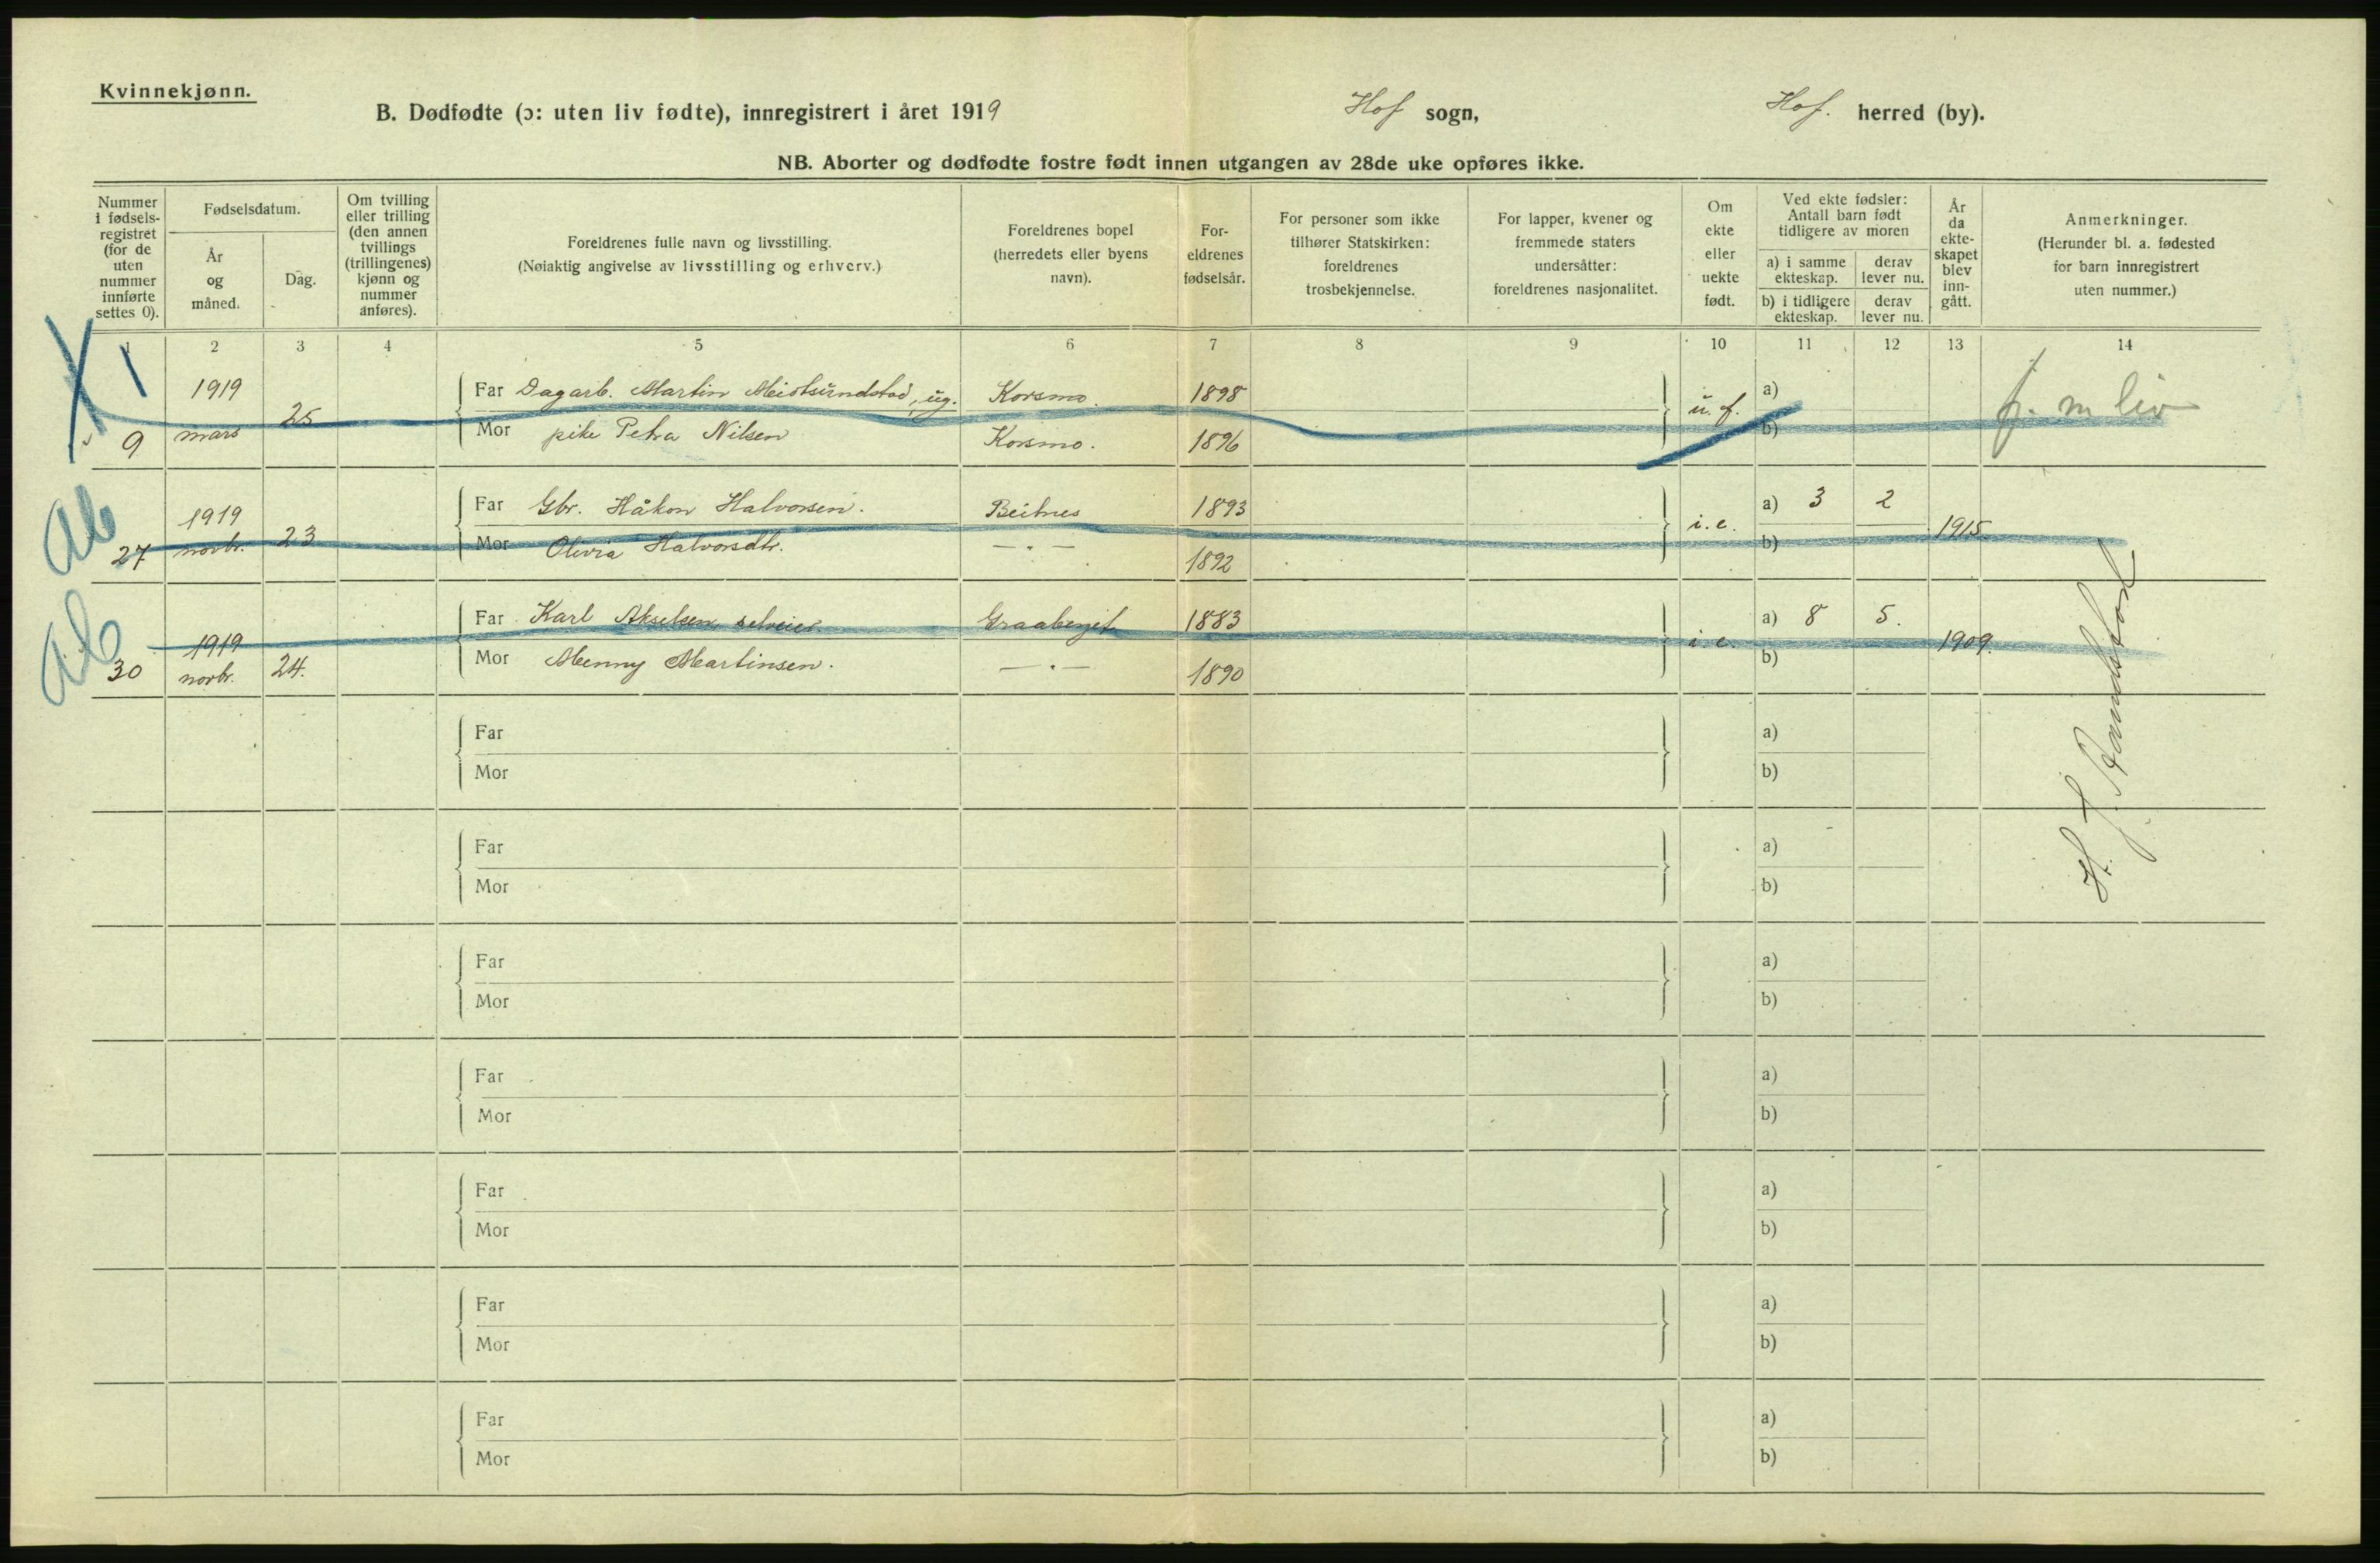 Kvinnekjønn.
B. Dødfødte (ɔ: uten liv fødte), innregistrert i året 1919 Hof sogn, Hof. herred (by).
NB. Aborter og dødfødte fostre født innen utgangen av 28de uke opføres ikke.
Nummer i fødsels-registret (for de uten nummer innførte settes 0).
Fødselsdatum.
År og måned.
Dag.
Om tvilling eller trilling (den annen tvillings (trillingenes) kjønn og nummer anføres).
Foreldrenes fulle navn og livsstilling.
(Nøiaktig angivelse av livsstilling og erhverv.)
Foreldrenes bopel (herredets eller byens navn).
For-eldrenes fødselsår.
For personer som ikke tilhører Statskirken: foreldrenes trosbekjennelse.
For lapper, kvener og fremmede staters undersåtter: foreldrenes nasjonalitet.
Om ekte eller uekte født.
Ved ekte fødsler: Antall barn født tidligere av moren
a) i samme ekteskap. derav lever nu.
b) i tidligere ekteskap. derav lever nu.
År da ekte-skapet blev inn-gått.
Anmerkninger.
(Herunder bl. a. fødested for barn innregistrert uten nummer.)
1 2 3 4 5 6 7 8 9 10 11 12 13 14
1919 Far Dagarb. Martin ug. Korsmo. 1898 u. f. a) f. m liv
9 mars 25 Mor pike Petra Nilsen Korsmo. 1896 b)
Ab 1919 Far Gbr. Håkon Halvorsen. Beitnes 1893 i. e. a) 3 2 1915
27 novbr. 23 Mor Olivia Halvorsdtr. — " — 1892 b)
Ab 1919 Far Karl Akselsen, selveier. Graaberget 1883 i. e. a) 8 5. 1909.
30 novbr. 24. Mor Menny Martinsen. — " — 1890 b)
Far a)
Mor b)
Far a)
Mor b)
Far a)
Mor b)
Far a)
Mor b)
Far a)
Mor b)
Far a)
Mor b)
Far a)
Mor b)